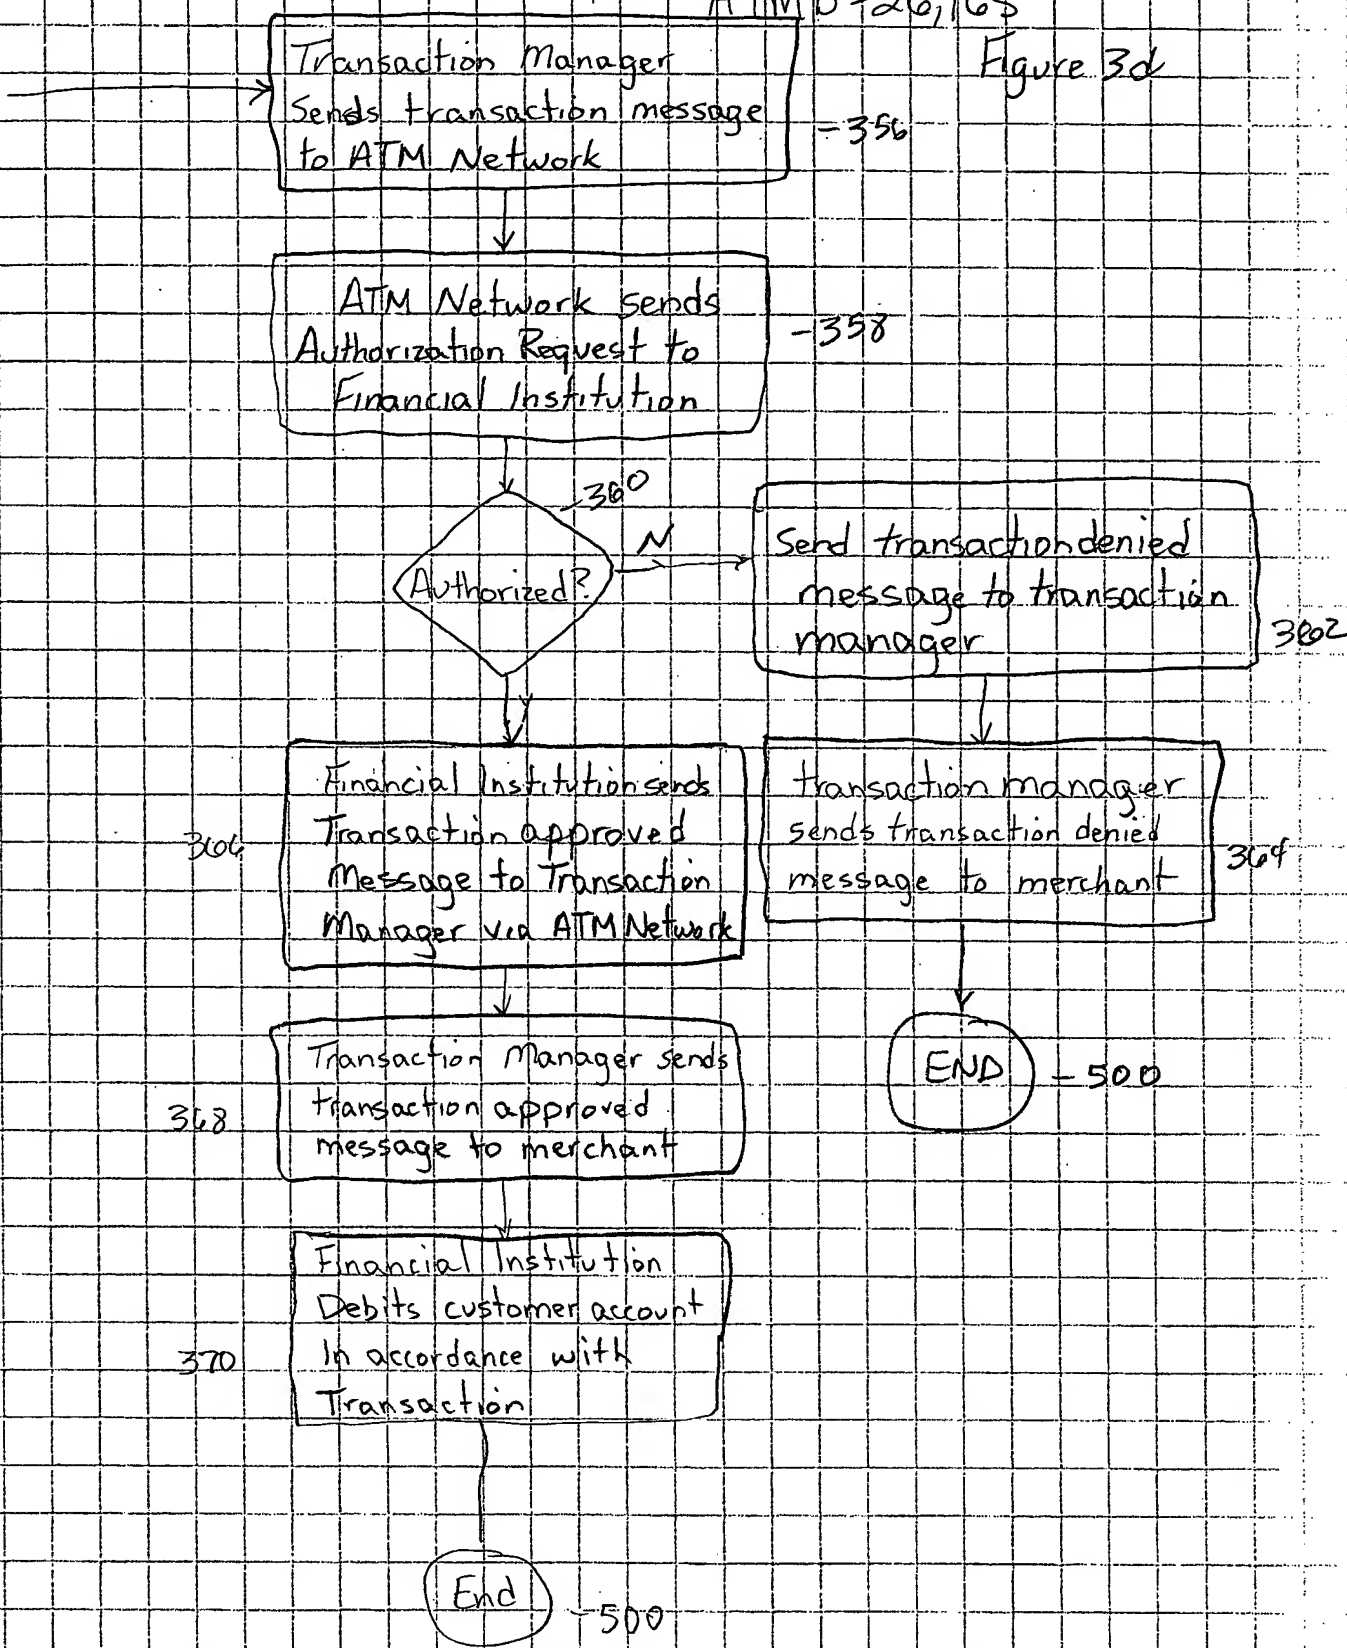 Figure 3d
Transaction Manager
Sends transaction message
to ATM Network
-356
ATM Network sends
Authorization Request to
Financial Institution
-358
-360
Authorized?
N
Send transaction denied
message to transaction
manager
362
Y
Financial Institution sends
Transaction approved
Message to Transaction
Manager via ATM Network
366
transaction manager
sends transaction denied
message to merchant
364
Transaction Manager sends
transaction approved
message to merchant
368
END
-500
Financial Institution
Debits customer account
In accordance with
Transaction
370
End
-500